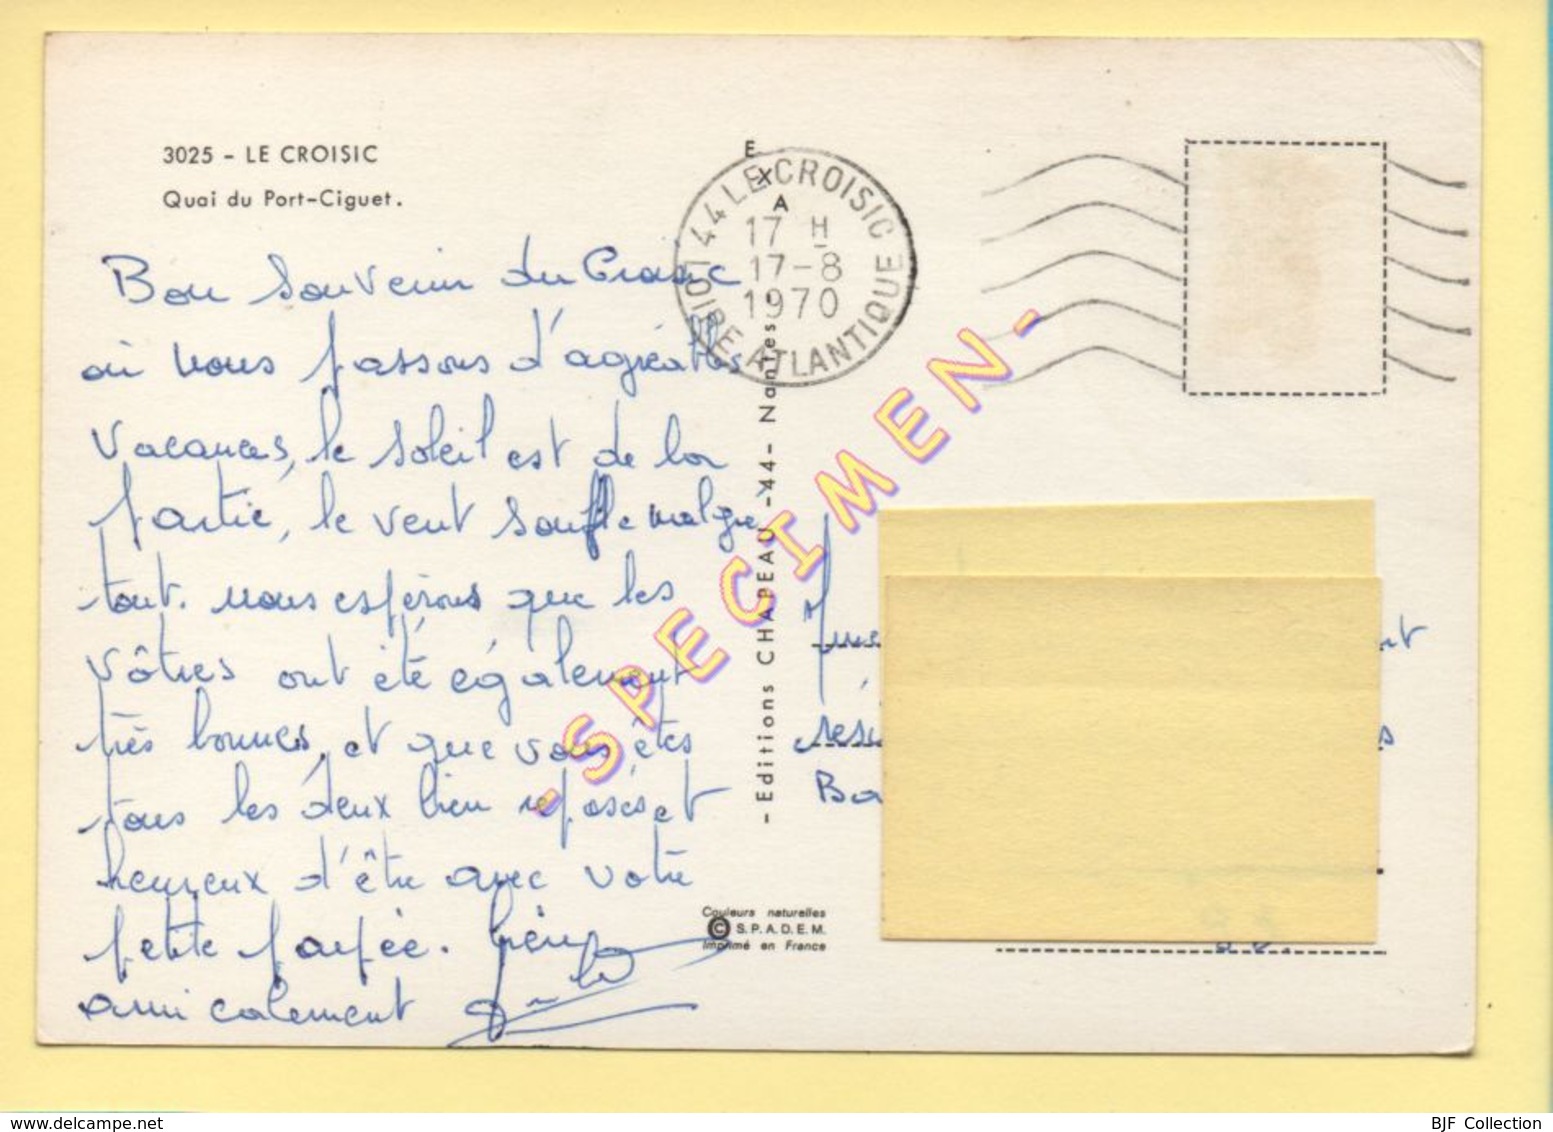 3025 - LE CROISIC
Quai du Port-Ciguet.
Bon souvenir du Croisic
où nous passons d'agréables
vacances, le soleil est de la
partie, le vent souffle malgré
tout. nous espérons que les
vôtres ont été également
très bonnes, et que vous êtes
tous les deux bien reposés et
heureux d'être avec votre
petite poupée. bien
amicalement
E X A
44 LE CROISIC
17 H
17-8
1970
LOIRE ATLANTIQUE
- Editions CHAPEAU -44- Nantes -
-SPECIMEN-
Couleurs naturelles
© S.P.A.D.E.M.
Imprimé en France
Ba
BJF Collection